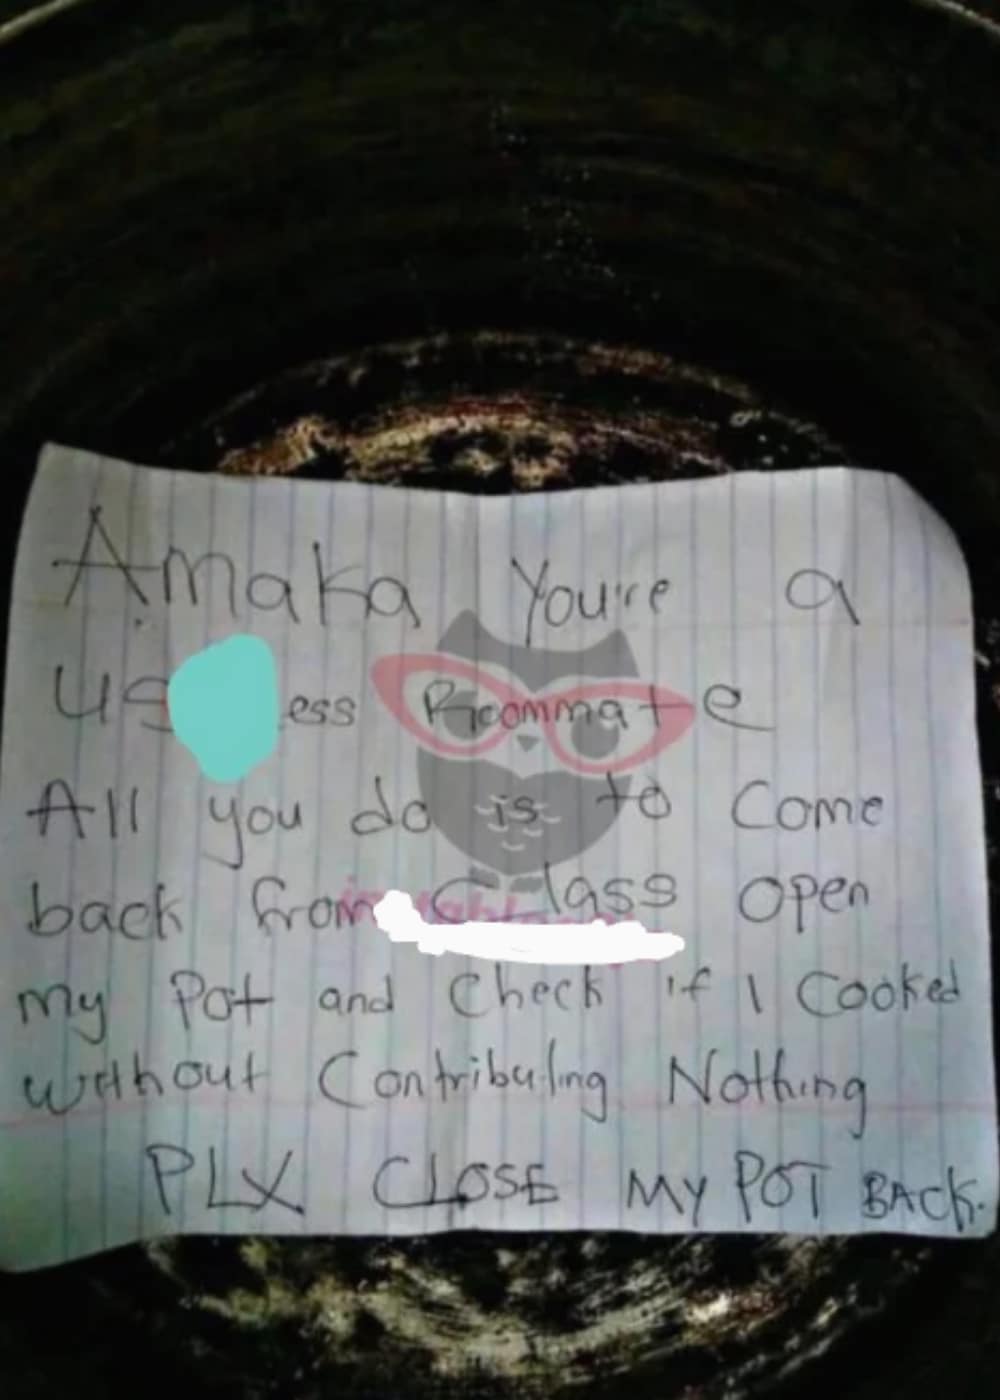 Amaka You're a
Roommate
All you do is to Come
back from Class open
my Pot and Check if I Cooked
without Contributing Nothing
PLX CLOSE MY POT BACK.